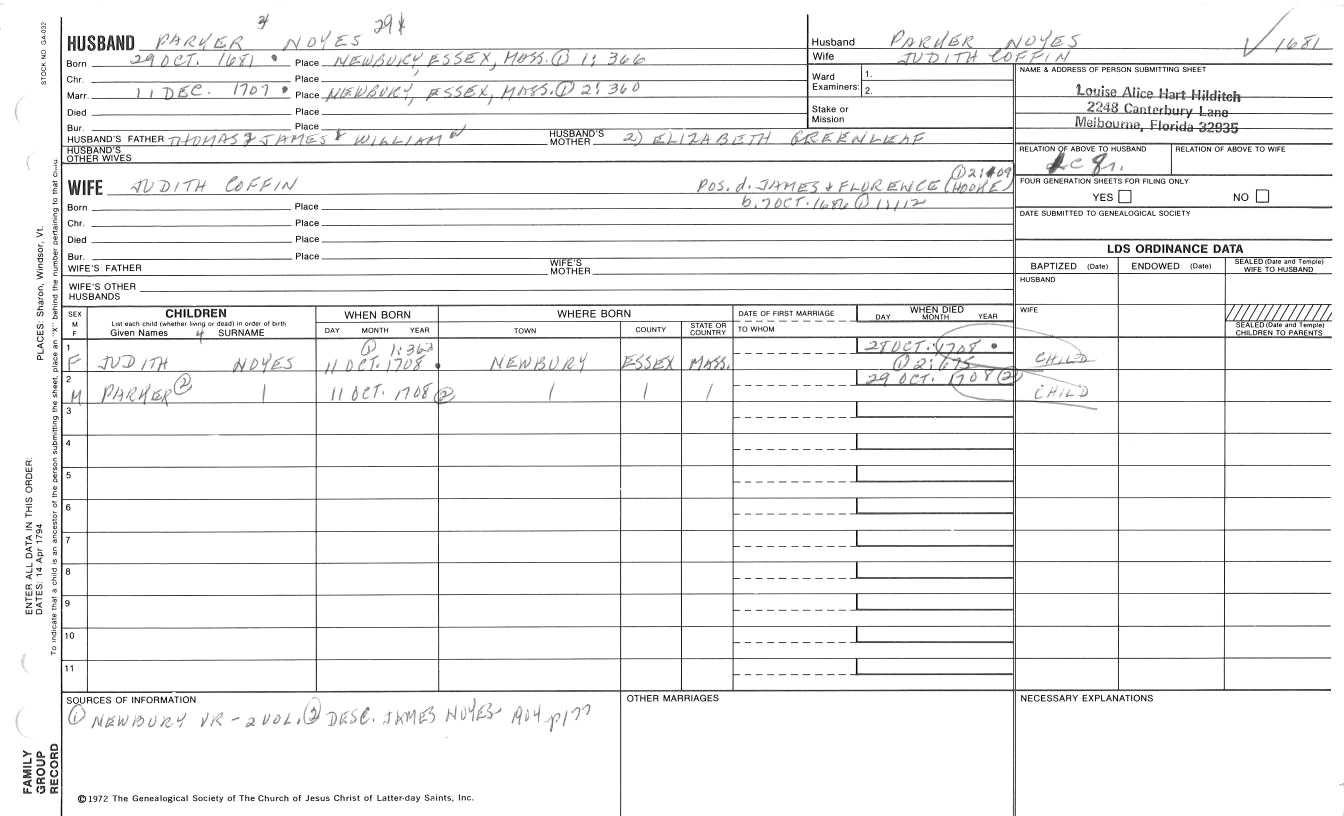 STOCK NO. GA-032
HUSBAND PARKER NOYES 29
Born 29 OCT. 1681 • Place NEWBURY, ESSEX, MASS. ① 1: 366
Chr. Place
Marr. 11 DEC. 1707 • Place NEWBURY, ESSEX, MASS. ① 2: 360
Died Place
Bur. Place
HUSBAND'S FATHER THOMAS JAMES WILLIAM HUSBAND'S MOTHER 2) ELIZABETH GREENLEAF
HUSBAND'S OTHER WIVES
Husband PARKER NOYES √ 1681
Wife JUDITH COFFIN
Ward Examiners: 1.
2.
Stake or Mission
NAME & ADDRESS OF PERSON SUBMITTING SHEET
Louise Alice Hart Hilditch
2248 Canterbury Lane
Melbourne, Florida 32935
RELATION OF ABOVE TO HUSBAND RELATION OF ABOVE TO WIFE
FOUR GENERATION SHEETS FOR FILING ONLY
YES NO
DATE SUBMITTED TO GENEALOGICAL SOCIETY
WIFE JUDITH COFFIN POS. d. JAMES & FLORENCE (HOOKE)
Born Place b. 7 OCT. 1686 ① 1:112
Chr. Place
Died Place
Bur. Place
WIFE'S FATHER WIFE'S MOTHER
WIFE'S OTHER HUSBANDS
LDS ORDINANCE DATA
BAPTIZED (Date) ENDOWED (Date) SEALED (Date and Temple) WIFE TO HUSBAND
HUSBAND
WIFE
SEALED (Date and Temple) CHILDREN TO PARENTS
SEX M F
CHILDREN
List each child (whether living or dead) in order of birth
Given Names SURNAME
WHEN BORN
DAY MONTH YEAR
WHERE BORN
TOWN COUNTY STATE OR COUNTRY
DATE OF FIRST MARRIAGE
TO WHOM
WHEN DIED
DAY MONTH YEAR
1 ① 1:362 28 OCT. 1708 •
F JUDITH NOYES 11 OCT. 1708 • NEWBURY ESSEX MASS. ① 2:675 CHILD
2 29 OCT. 1708 ②
M PARKER ② | 11 OCT. 1708 ② | | | CHILD
3
4
5
6
7
8
9
10
11
SOURCES OF INFORMATION
① NEWBURY VR - 2 VOL. ② DESC. JAMES NOYES A04 p177
OTHER MARRIAGES
NECESSARY EXPLANATIONS
©1972 The Genealogical Society of The Church of Jesus Christ of Latter-day Saints, Inc.
FAMILY GROUP RECORD
ENTER ALL DATA IN THIS ORDER:
DATES: 14 Apr 1794
PLACES: Sharon, Windsor, Vt.
To indicate that a child is an ancestor of the person submitting the sheet, place an "X" behind the number pertaining to that child.